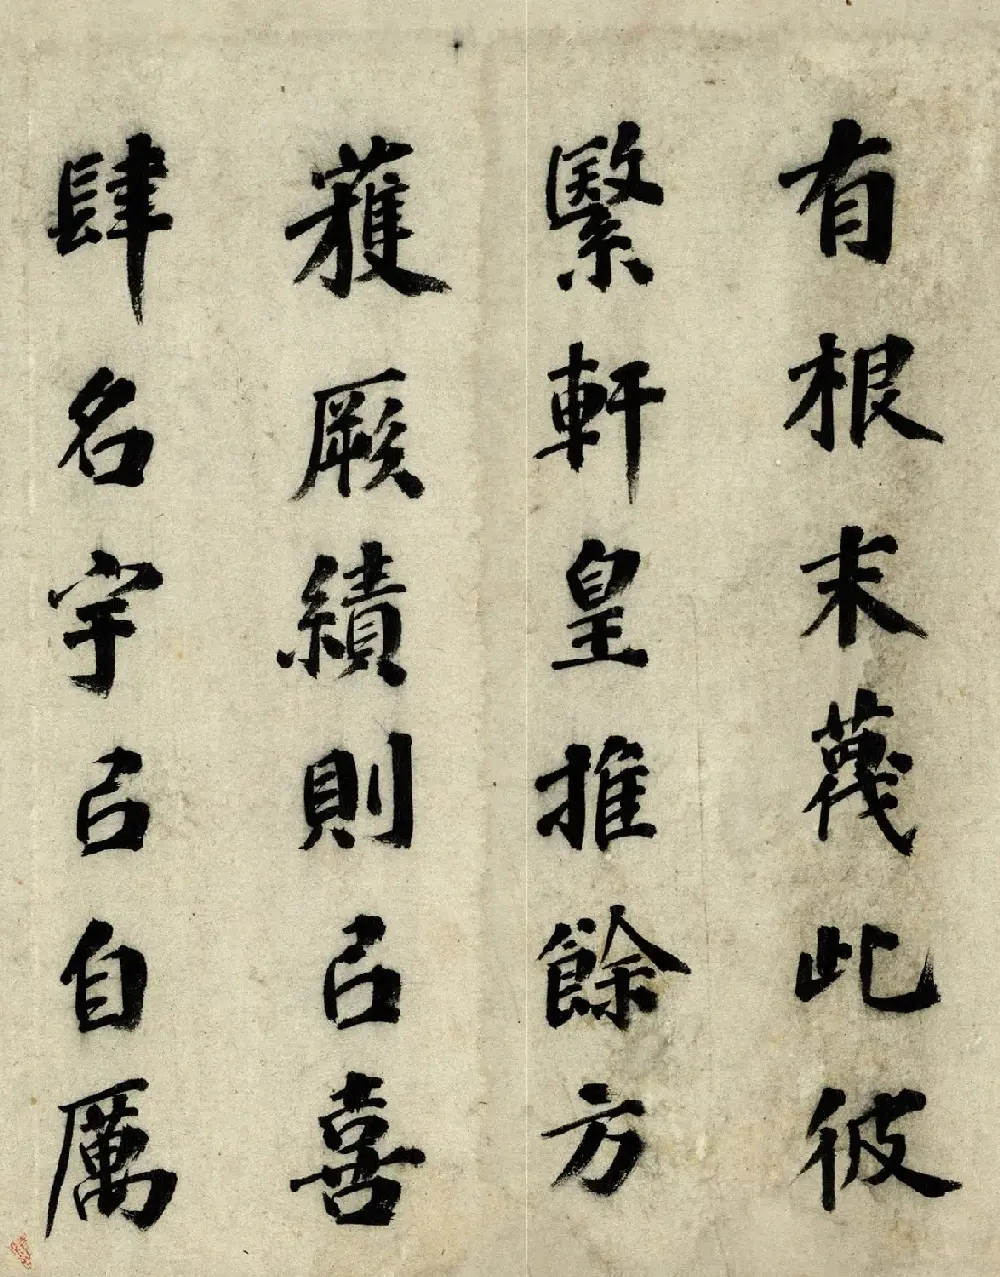 有根末蔑此彼
繄軒皇推餘方
獲厥績則㠯喜
肆名宇㠯自厲